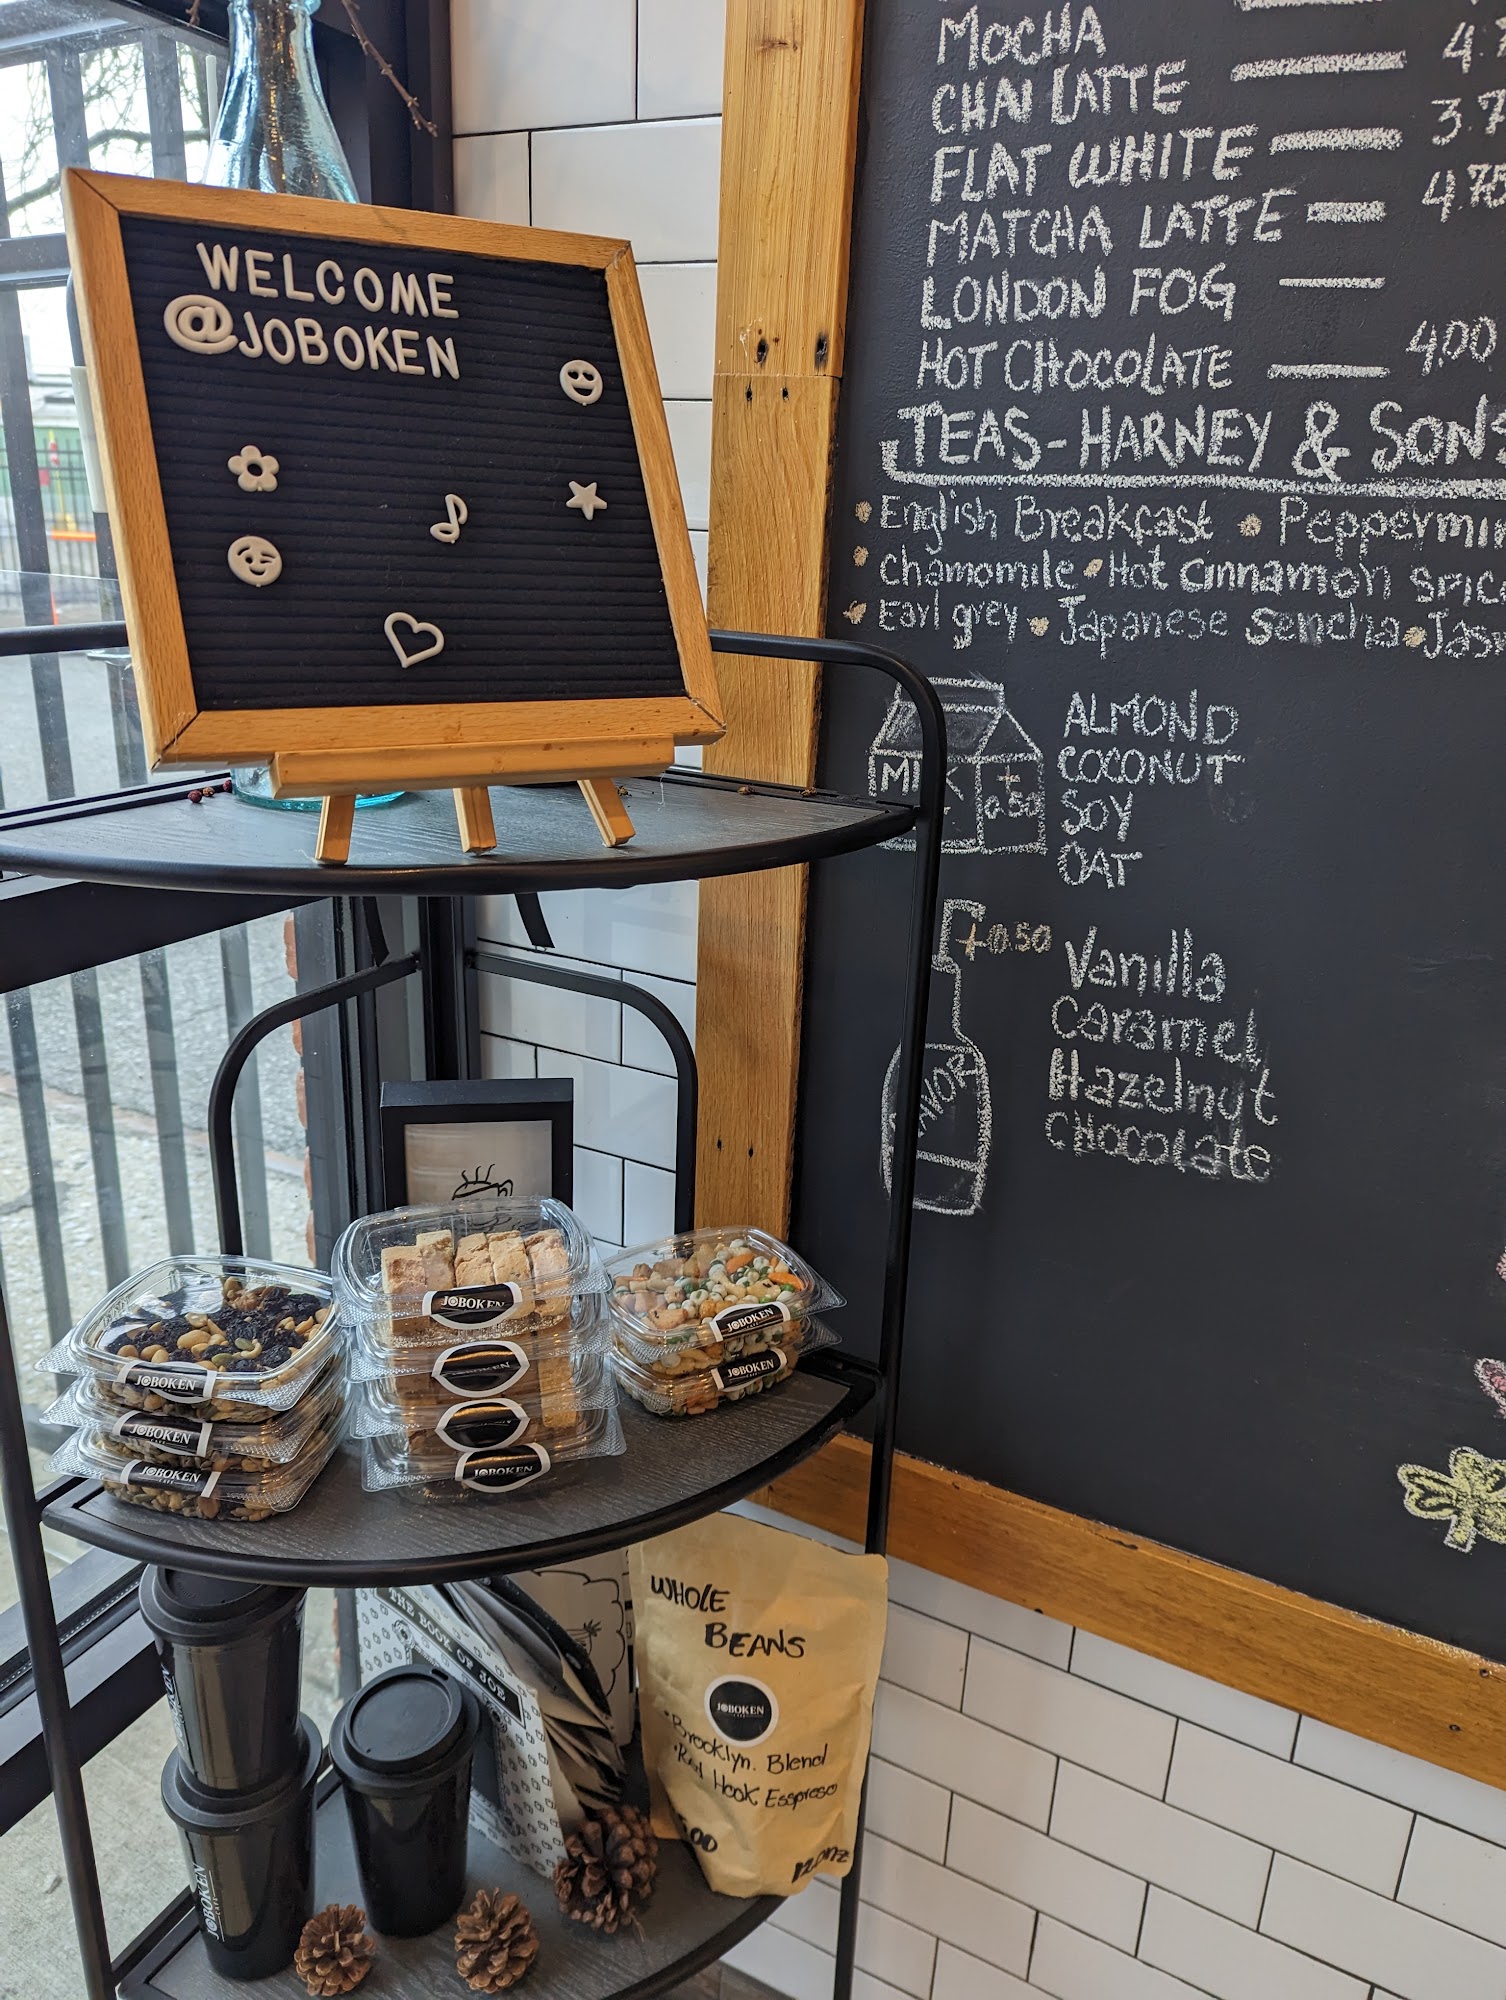 WELCOME
@JOBOKEN
MOCHA
CHAI LATTE
FLAT WHITE
MATCHA LATTE 4.75
LONDON FOG
HOT CHOCOLATE 4.00
TEAS - HARNEY & SONS
English Breakfast
Chamomile • Hot cinnamon
Earl grey • Japanese Sencha
ALMOND
COCONUT
SOY
OAT
+0.50
+0.50
Vanilla
Caramel
Hazelnut
CHOCOLATE
JOBOKEN
JOBOKEN
JOBOKEN
JOBOKEN
CAFE
JOBOKEN
CAFE
JOBOKEN
JOBOKEN
CAFE
JOBOKEN
THE BOOK OF JOE
WHOLE
BEANS
JOBOKEN
• Brooklyn. Blend
• Red Hook Esspreso
JOBOKEN
CAFE